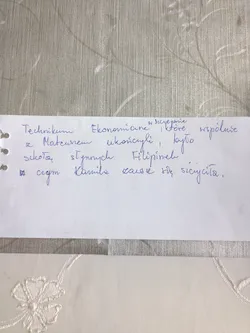 w Szczecinie
Technikum Ekonomiczne, które wspólnie
z Mateuszem ukończyli, było
szkołą słynnych Filipinek
czym Kamila zawsze się szczyciła.